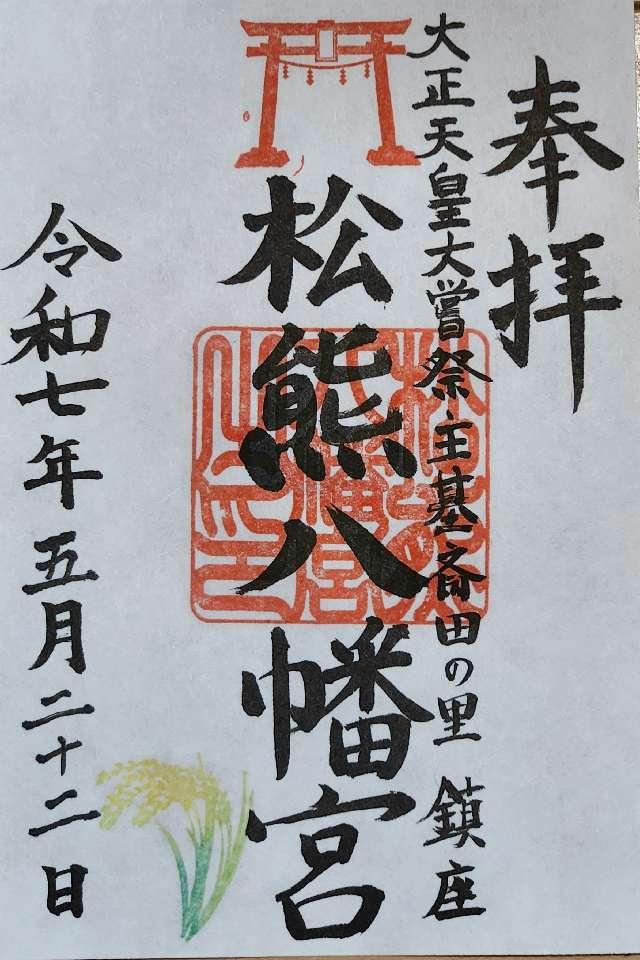 奉拝
大正天皇大嘗祭主基斎田の里 鎮座
松熊八幡宮
令和七年五月二十二日